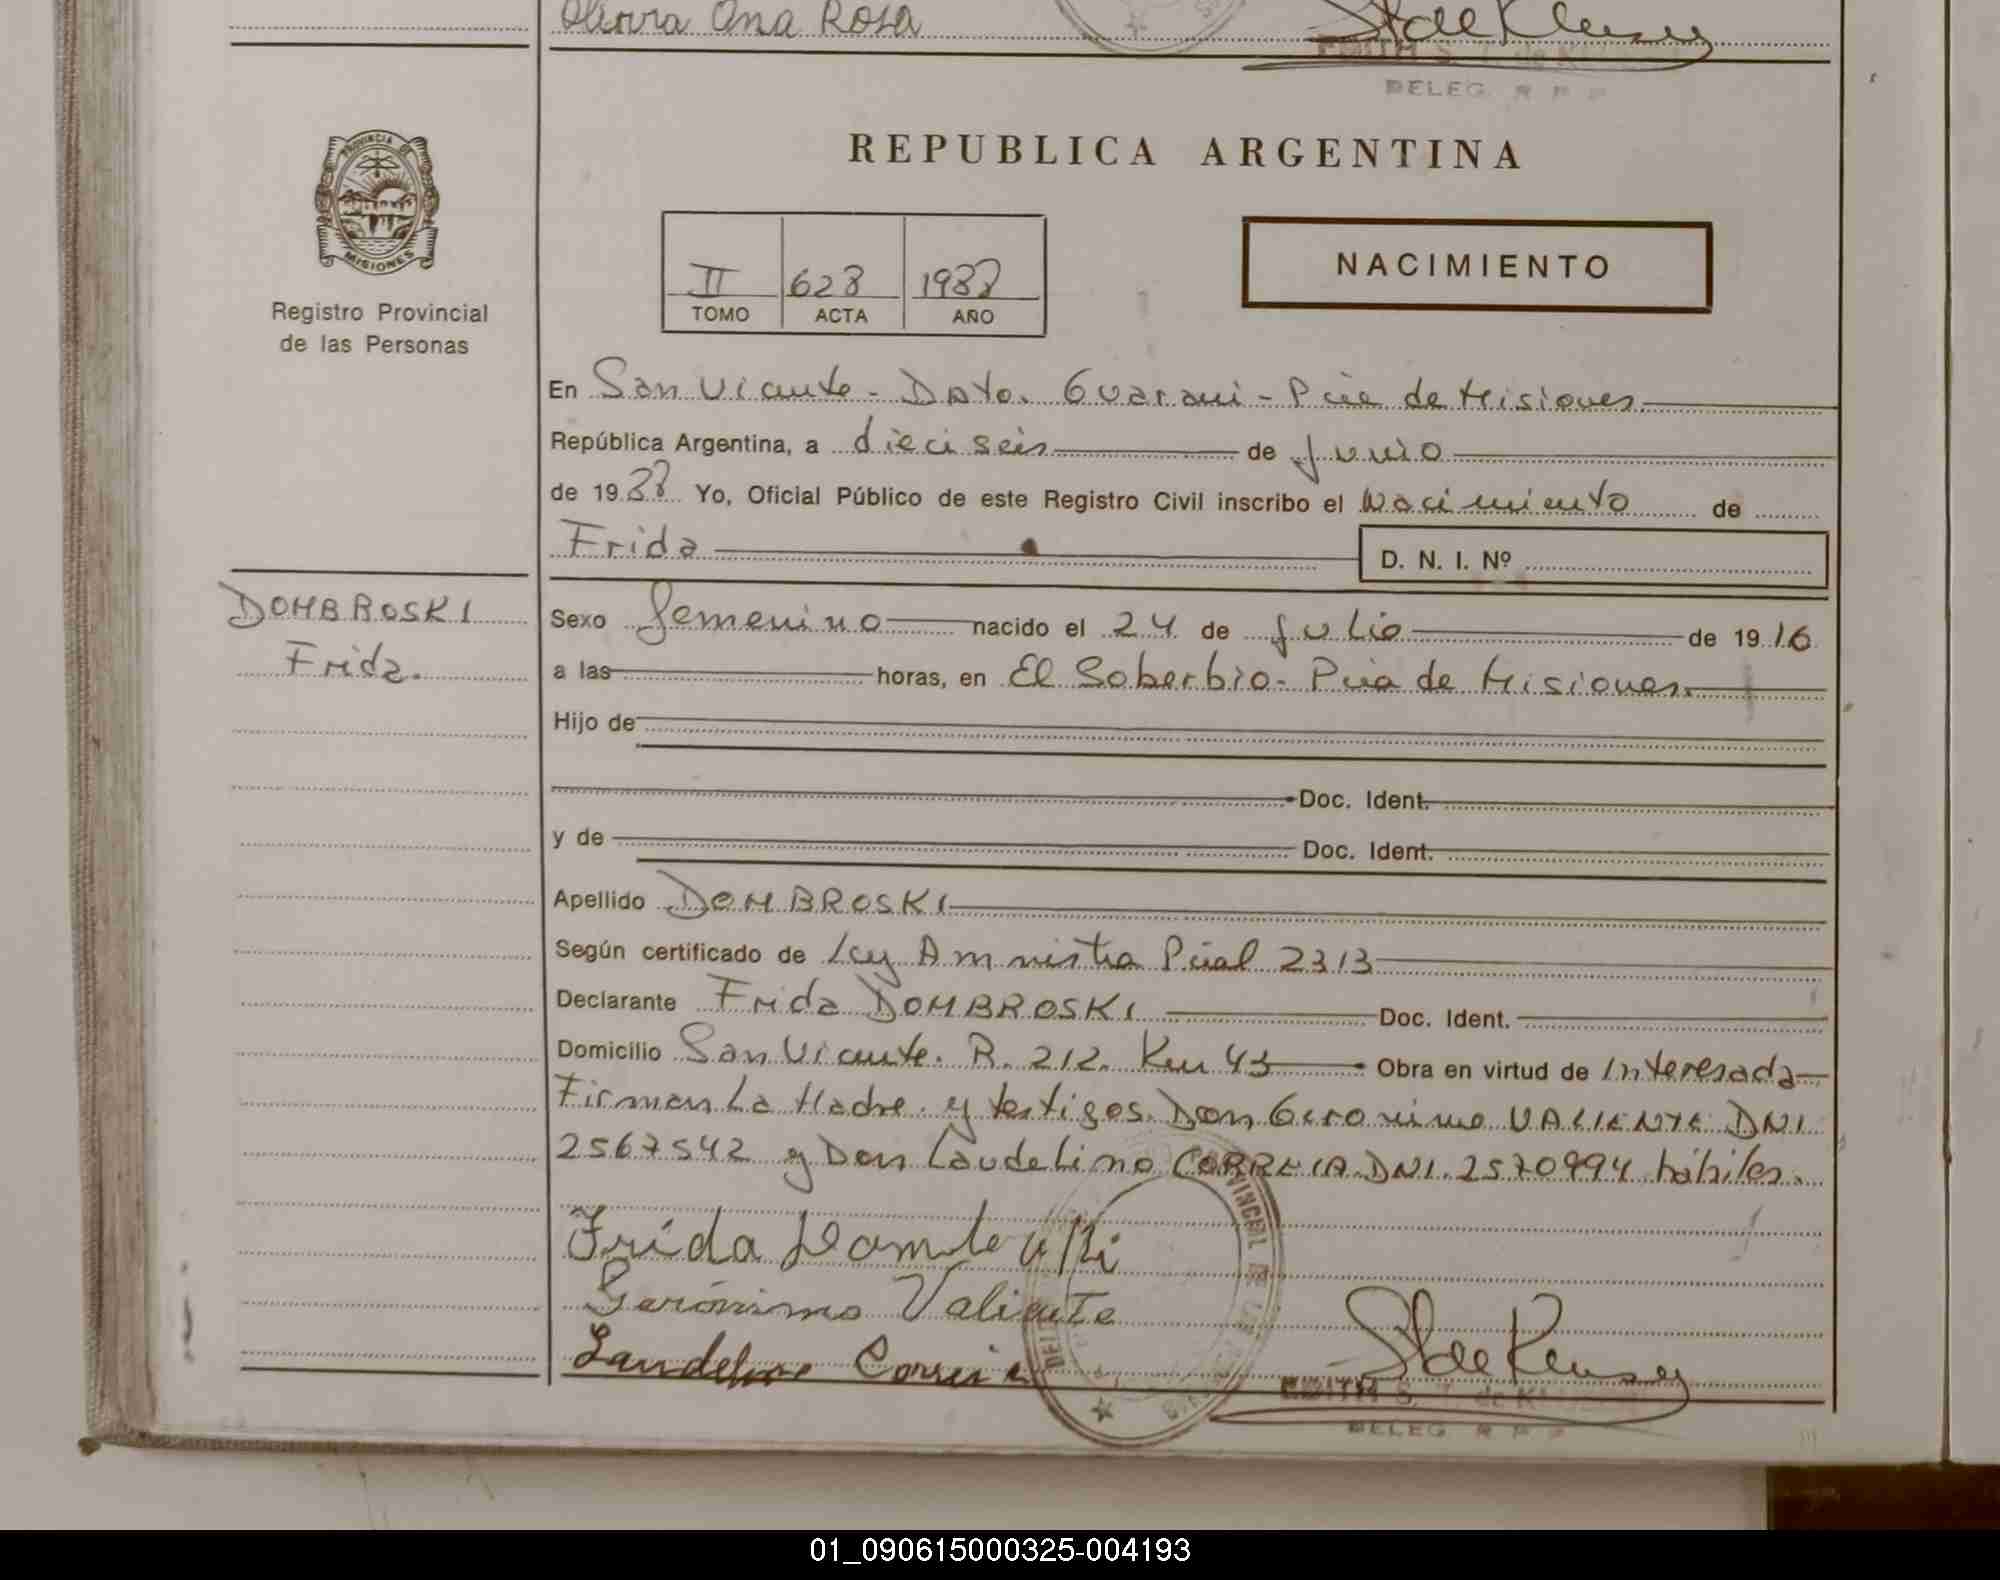 Olivera Ana Rosa
EDITH S. T. de K
DELEG. R P P
PROVINCIA DE
MISIONES
Registro Provincial
de las Personas
REPUBLICA ARGENTINA
II 628 1988
TOMO ACTA AÑO
NACIMIENTO
En San Vicente - Dpto. Guarani - Pcia de Misiones
República Argentina, a dieciseis de Junio
de 1988 Yo, Oficial Público de este Registro Civil inscribo el Nacimiento de
Frida D. N. I. Nº
DOMBROSKI
Frida.
Sexo femenino nacido el 24 de Julio de 1916
a las horas, en El Soberbio - Pcia de Misiones.
Hijo de
Doc. Ident.
y de Doc. Ident.
Apellido DOMBROSKI
Según certificado de Ley Amnistia Pcial 2313
Declarante Frida DOMBROSKI Doc. Ident.
Domicilio San Vicente. R. 212. Km 43 Obra en virtud de Interesada
Firman La Madre y testigos Don Geronimo VALIENTE DNI
2567542 y Don Laudelino CORREIA DNI. 2570994 hábiles.
Frida
Gerónimo Valiente
Laudelino Correia
EDITH S. T. de K
DELEG R P P
01_090615000325-004193